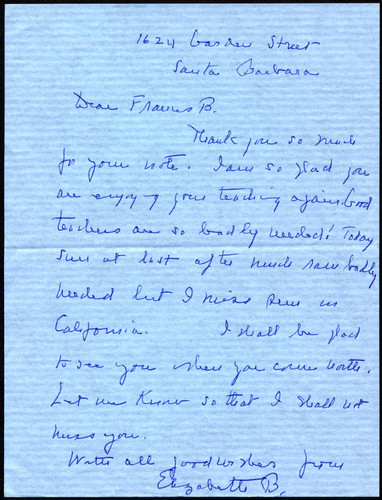 1624 Garden Street
Santa Barbara
Dear Francis B.
Thank you so much
for your note. I am so glad you
are enjoying your teaching again. Good
teachers are so badly needed! Today
sun at last after much rain badly
needed but I miss sun in
California. I shall be glad
to see you when you come north.
Let me know so that I shall not
miss you.
With all good wishes from
Elizabeth B.